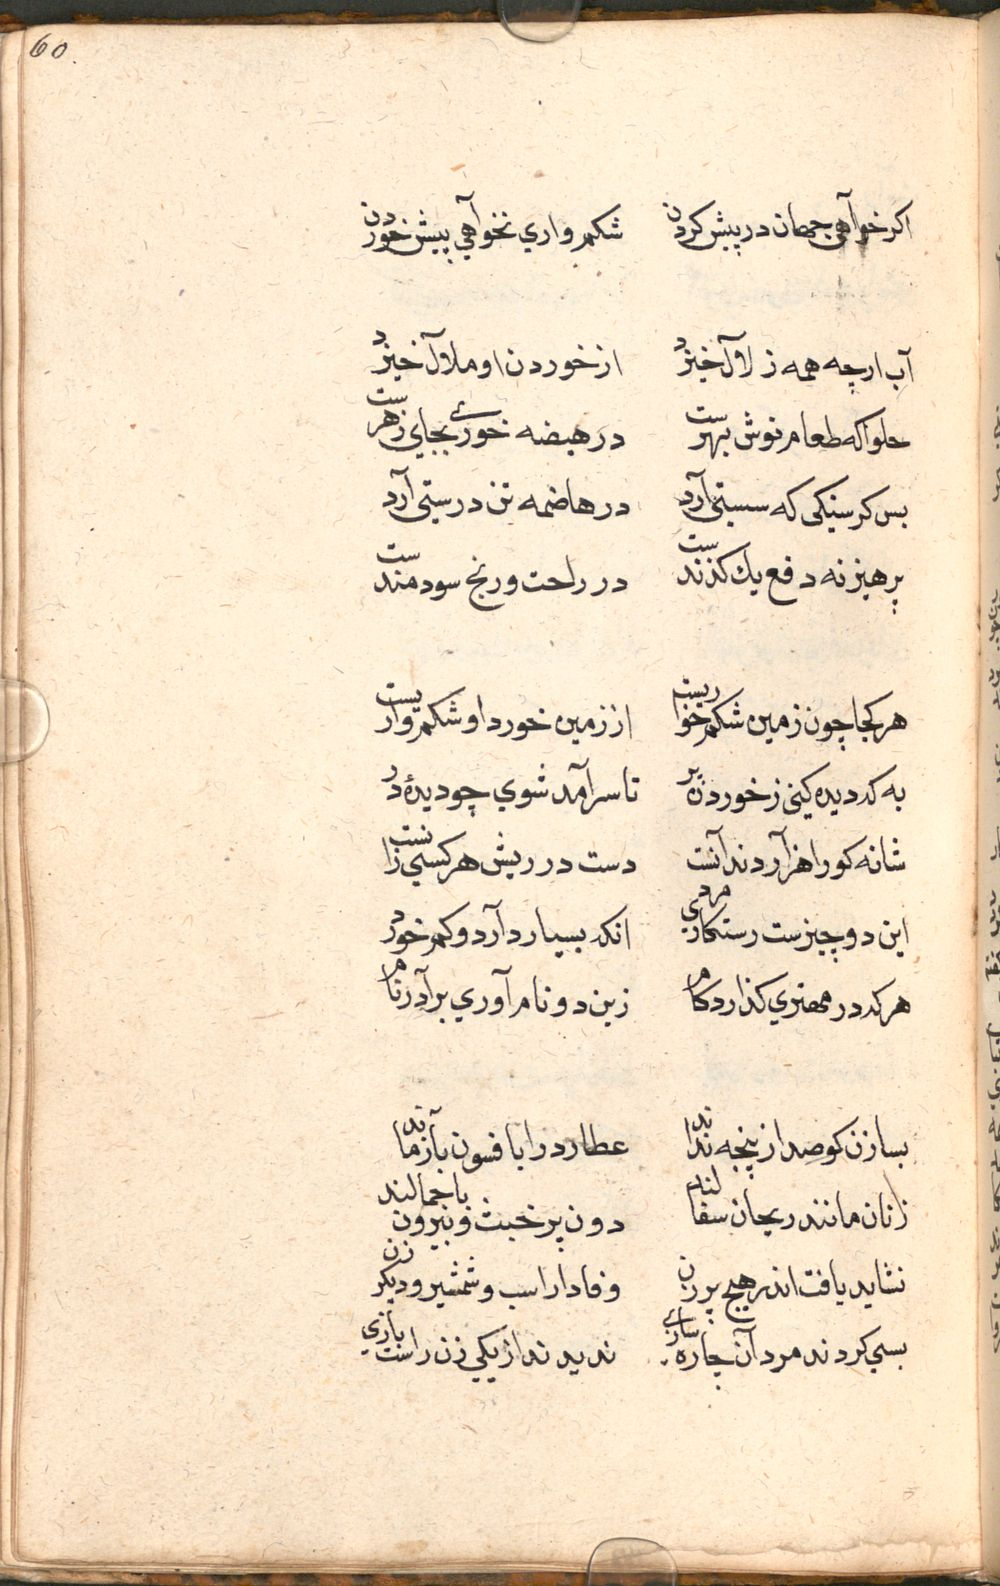 60
اكر خواهي جهان در پيش كردن شكم واري نخواهي بيش خوردن
آب ارچه همه زلال خيزد از خوردن او ملال خيزد
حلوا كه طعام نوش بهرست در هيضه خوري بجاي زهرست
بس كرسنكى كه سستي آرد در هاضمه تن درستي آرد
پرهيز نه دفع يك كزندست در راحت و رنج سودمندست
هر كجا چون زمين شكم خواريست از زمين خورد او شكم واريست
به كه ديده كنى ز خوردن پر تا سرآمد شوي چو ديدهٔ در
شانه كو را هزار دندانست دست در ريش هر كسي زانست
اين دو چيزست رستكار مردي انكه بسيار دارد و كم خورد
هر كه در مهتري كذارد كام زين دو نام آوري برآرد نام
بسا زن كو صد از پنجه نداند عطارد را بافسون بازماند
زنان مانند ريحان سفالند درون پر خبث و بيرون با جمالند
نشايد يافت اندر هيچ برزن وفادار اسب و شمشير و ديكر زن
بسي كردند مردان چاره سازي نديدند از يكي زن راست بازي